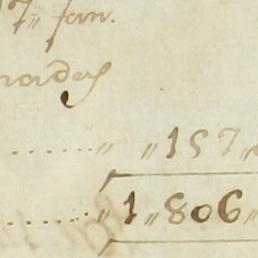 7,, fan.
rados
........,, ,,157,,
........,,1,,806,,